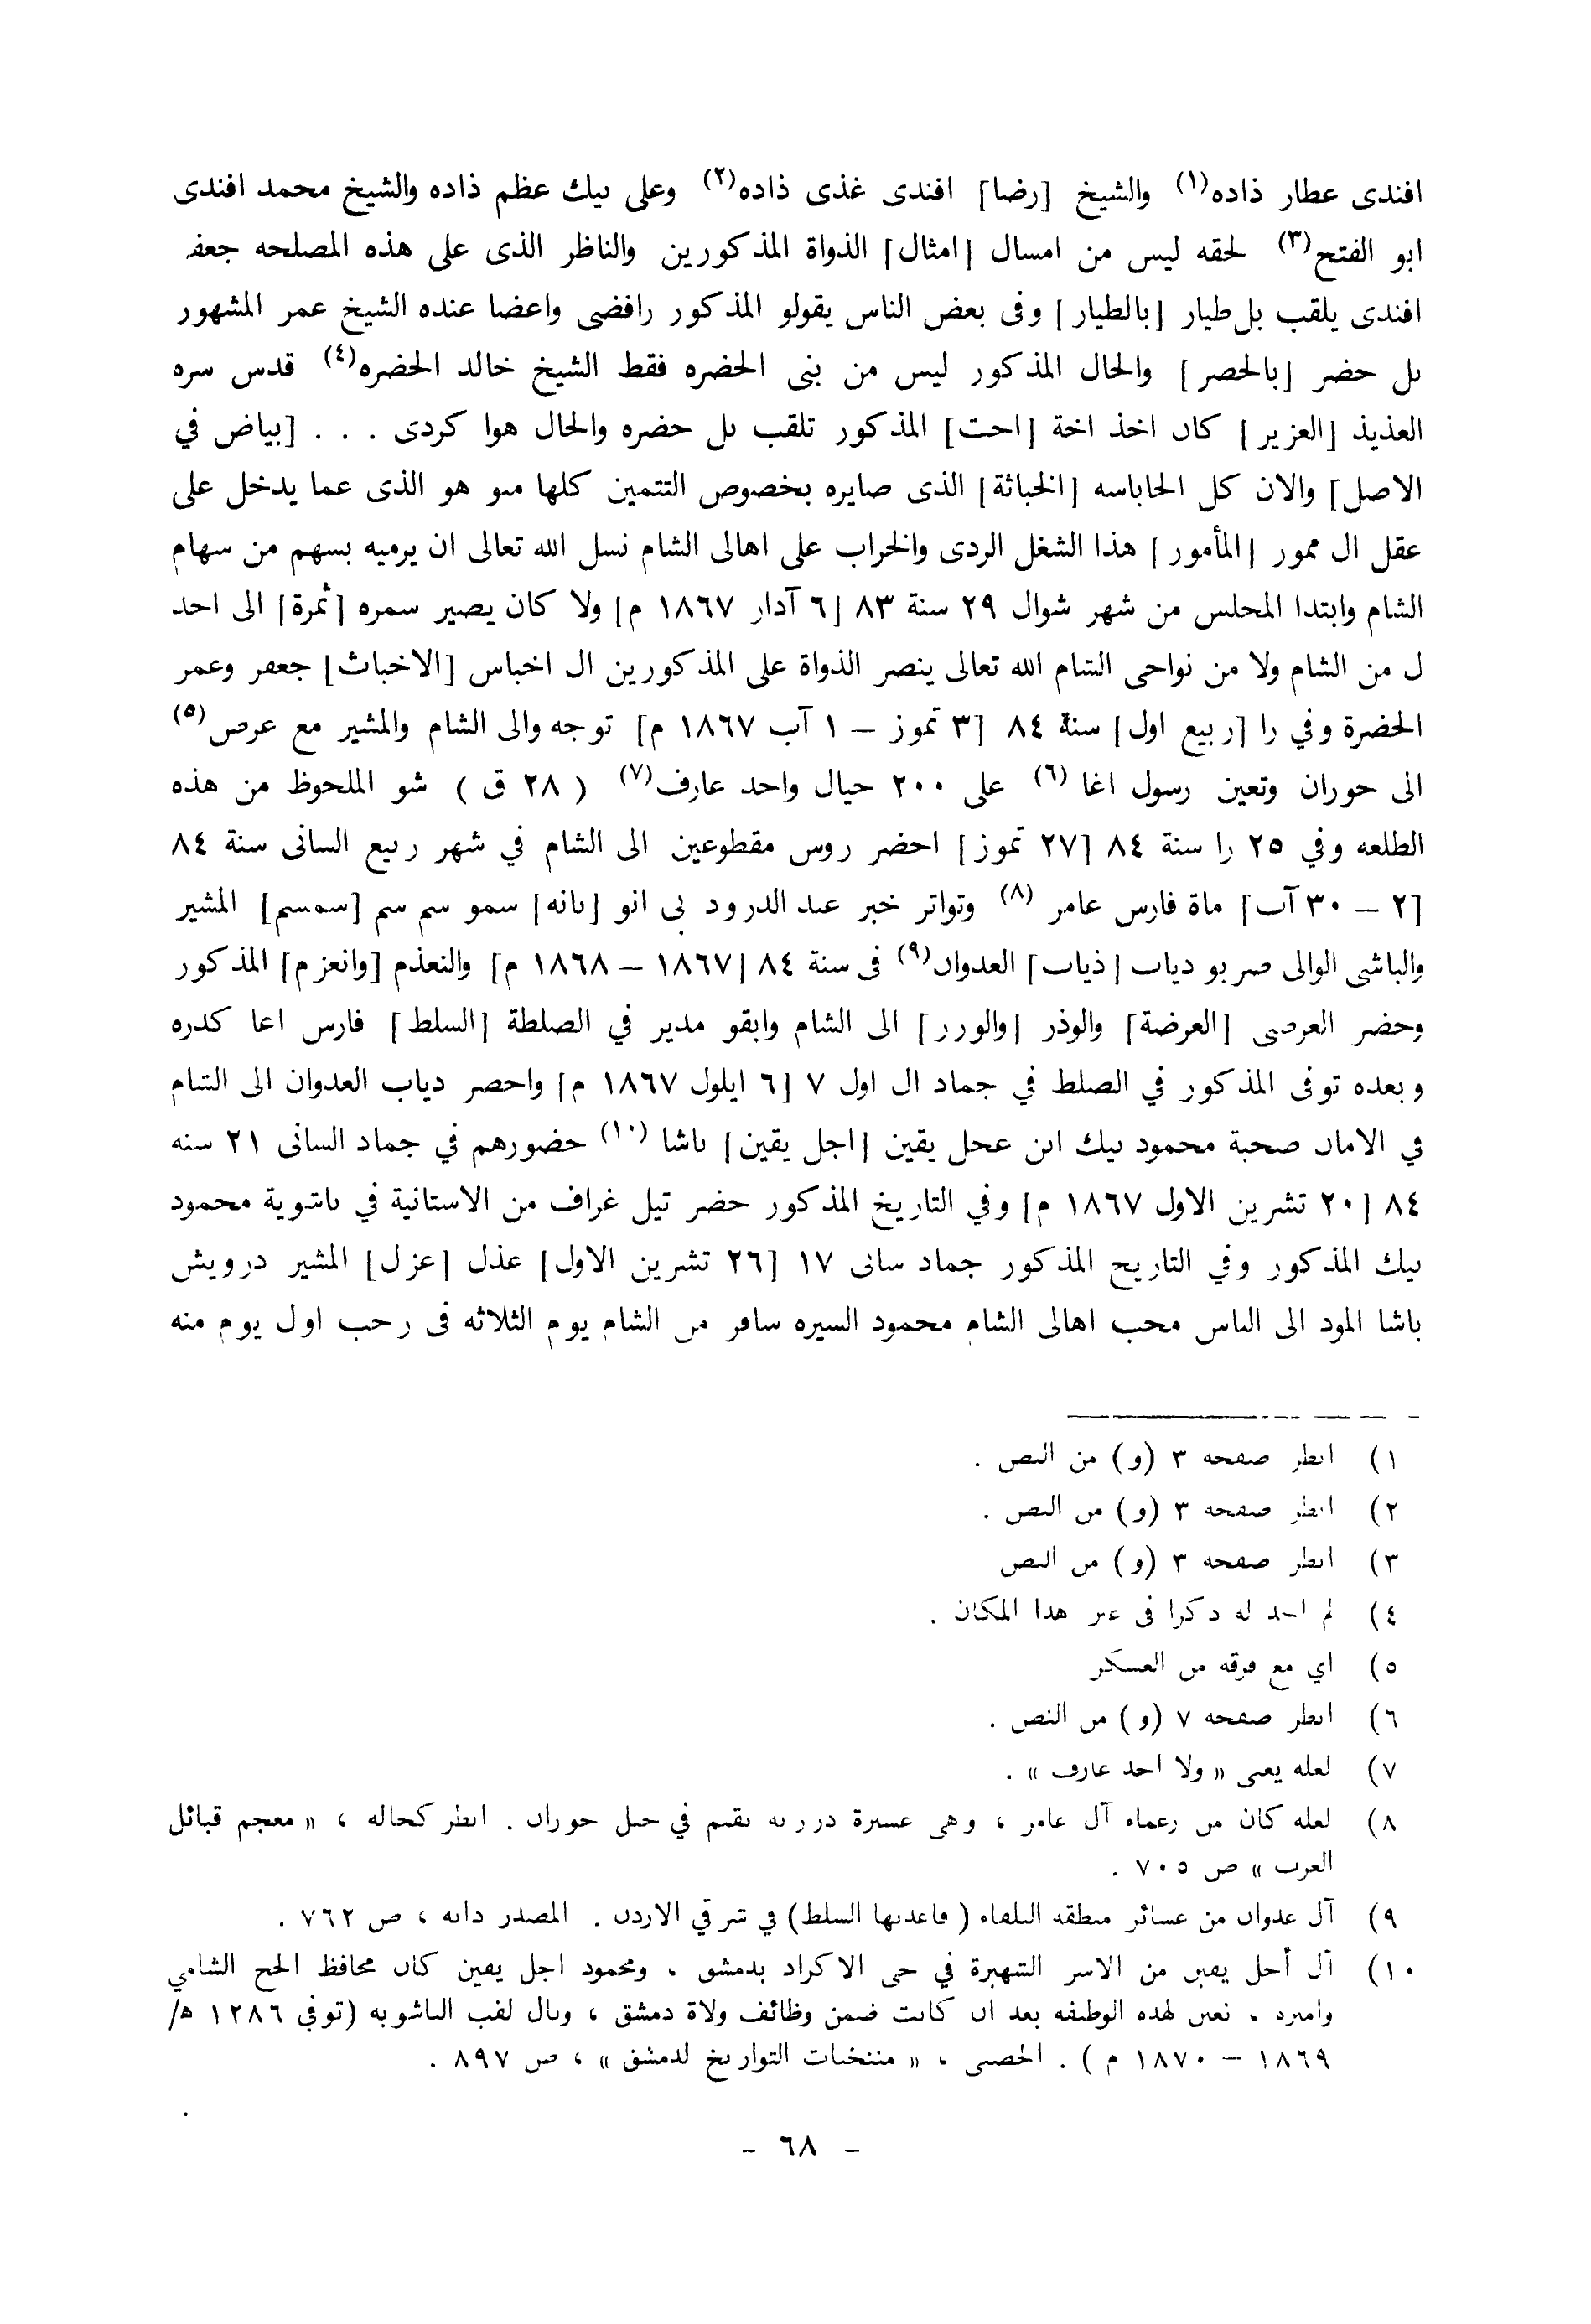 افندى عطار ذاده(١) والشيخ [رضا] افندى غذى ذاده(٢) وعلى بيك عظم ذاده والشيخ محمد افندى
ابو الفتح(٣) لحقه ليس من امسال [امثال] الذواة المذكورين والناظر الذى على هذه المصلحه جعفر
افندى يلقب بل طيار [بالطيار] وفى بعض الناس يقولو المذكور رافضى واعضا عنده الشيخ عمر المشهور
بل حضر [بالحصر] والحال المذكور ليس من بنى الحضره فقط الشيخ خالد الحضره(٤) قدس سره
العذيذ [العزيز] كان اخذ اخة [اخت] المذكور تلقب بل حضره والحال هوا كردى . . . [بياض في
الاصل] والان كل الخاباسه [الخباثة] الذى صايره بخصوص التتمين كلها منو هو الذى عما يدخل على
عقل ال ممور [المأمور] هذا الشغل الردى والخراب على اهالى الشام نسل الله تعالى ان يرميه بسهم من سهام
الشام وابتدا المجلس من شهر شوال ٢٩ سنة ٨٣ [٦ آدار ١٨٦٧ م] ولا كان يصير سمره [ثمرة] الى احد
ل من الشام ولا من نواحى الشام الله تعالى ينصر الذواة على المذكورين ال اخباس [الاخباث] جعفر وعمر
الحضرة وفي را [ربيع اول] سنة ٨٤ [٣ تموز – ١ آب ١٨٦٧ م] توجه والى الشام والمشير مع عرص(٥)
الى حوران وتعين رسول اغا (٦) على ٢٠٠ خيال واحد عارف(٧) ( ٢٨ ق ) شو الملحوظ من هذه
الطلعه وفي ٢٥ را سنة ٨٤ [٢٧ تموز] احضر روس مقطوعين الى الشام في شهر ربيع السانى سنة ٨٤
[٢ – ٣٠ آب] ماة فارس عامر (٨) وتواتر خبر عند الدرود بى انو [بانه] سمو سم سم [سمسم] المشير
والباشى الوالى صربو دياب [ذياب] العدوان(٩) فى سنة ٨٤ [١٨٦٧ – ١٨٦٨ م] والنعذم [وانعزم] المذكور
وحضر العرصى [العرضة] والوذر [والوزر] الى الشام وابقو مدير في الصلطة [السلط] فارس اغا كدره
وبعده توفى المذكور في الصلط في جماد ال اول ٧ [٦ ايلول ١٨٦٧ م] واحضر دياب العدوان الى الشام
في الامان صحبة محمود بيك ابن عجل يقين [اجل يقين] باشا (١٠) حضورهم في جماد السانى ٢١ سنه
٨٤ [٢٠ تشرين الاول ١٨٦٧ م] وفي التاريخ المذكور حضر تيل غراف من الاستانية في باشوية محمود
بيك المذكور وفي التاريخ المذكور جماد سانى ١٧ [٢٦ تشرين الاول] عذل [عزل] المشير درويش
باشا المود الى الناس محب اهالى الشام محمود السيره سافر من الشام يوم الثلاثه فى رجب اول يوم منه
١) انظر صفحه ٣ (و) من النص .
٢) انظر صفحه ٣ (و) من النص .
٣) انظر صفحه ٣ (و) من النص
٤) لم اجد له ذكرا فى غير هذا المكان .
٥) اي مع فرقه من العسكر
٦) انظر صفحه ٧ (و) من النص .
٧) لعله يعنى « ولا احد عارف » .
٨) لعله كان من زعماء آل عامر ، وهى عشيرة درزيه تقيم في جبل حوران . انظر كحاله ، « معجم قبائل
العرب » ص ٧٠٥ .
٩) آل عدوان من عشائر منطقه البلقاء ( قاعدتها السلط) في شرقي الاردن . المصدر ذاته ، ص ٧٦٢ .
١٠) آل أجل يقين من الاسر الشهيرة في حى الاكراد بدمشق ، ومحمود اجل يقين كان محافظ الحج الشامي
واميره ، تعين لهذه الوظيفه بعد ان كانت ضمن وظائف ولاة دمشق ، ونال لقب الباشويه (توفي ١٢٨٦ ه/
١٨٦٩ – ١٨٧٠ م ) . الحصنى ، « منتخبات التواريخ لدمشق » ، ص ٨٩٧ .
- ٦٨ -